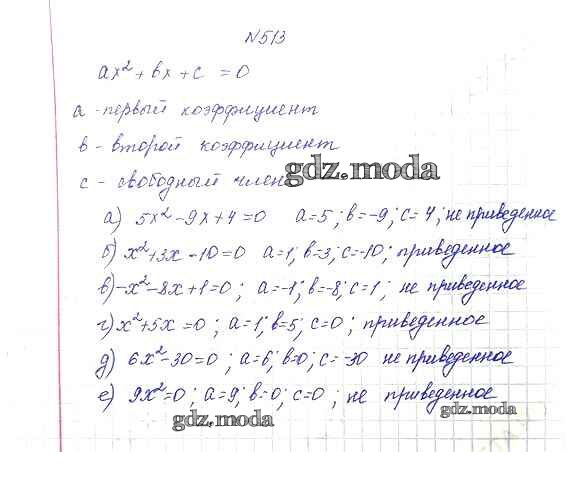 №513
ax² + bx + c = 0
a - первый коэффициент
b - второй коэффициент
gdz.moda
c - свободный член
а) 5x² - 9x + 4 = 0 a = 5; b = -9; c = 4; не приведенное
б) x² + 3x - 10 = 0 a = 1; b = 3; c = -10; приведенное
в) -x² - 8x + 1 = 0; a = -1; b = -8; c = 1; не приведенное
г) x² + 5x = 0; a = 1; b = 5; c = 0; приведенное
д) 6x² - 30 = 0; a = 6; b = 0; c = -30 не приведенное
е) 9x² = 0; a = 9; b = 0; c = 0; не приведенное
gdz.moda gdz.moda